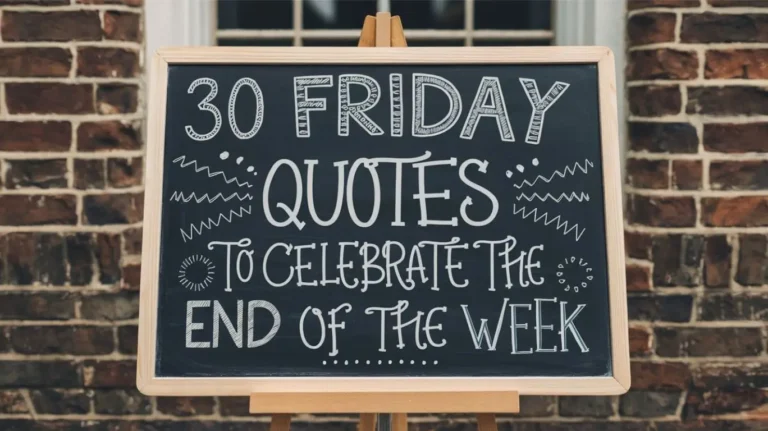 30 FRIDAY
QUOTES
TO CELEBRATE THE
END OF THE WEEK